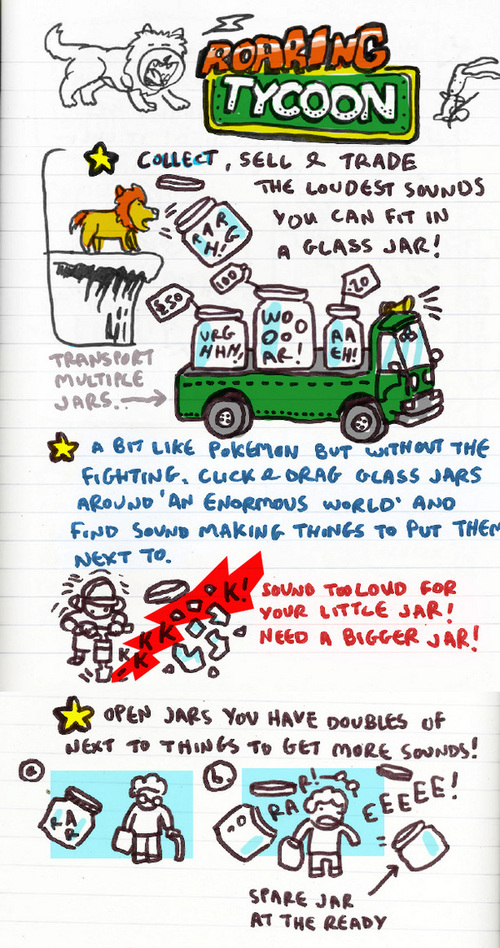 ROARING
TYCOON
COLLECT, SELL & TRADE
THE LOUDEST SOUNDS
YOU CAN FIT IN
A GLASS JAR!
RARGH!
£50
100
20
URG
HHH!
WOOO
OAR!
AA
EH!
TRANSPORT
MULTIPLE
JARS..
A BIT LIKE POKEMON BUT WITHOUT THE
FIGHTING. CLICK & DRAG GLASS JARS
AROUND 'AN ENORMOUS WORLD' AND
FIND SOUND MAKING THINGS TO PUT THEM
NEXT TO.
KKKKKK!
SOUND TOO LOUD FOR
YOUR LITTLE JAR!
NEED A BIGGER JAR!
OPEN JARS YOU HAVE DOUBLES OF
NEXT TO THINGS TO GET MORE SOUNDS!
a
RAR
b
RAR!
EEEEE!
SPARE JAR
AT THE READY